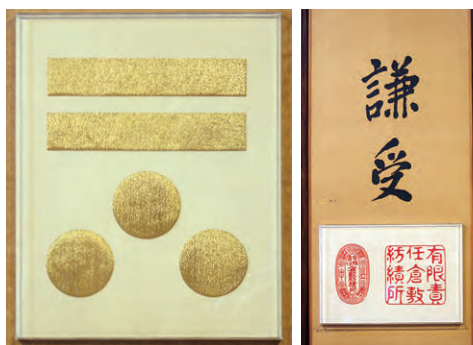 謙受
有限責
任倉敷
紡績所